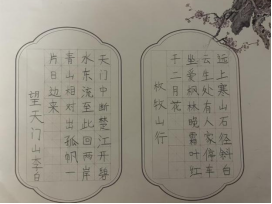 远上寒山石径斜白
云生处有人家停车
坐爱枫林晚霜叶红
于二月花
牧山行
天门中断楚江开碧
水东流至此回两岸
青山相对出孤帆一
片日边来
望天门山李白